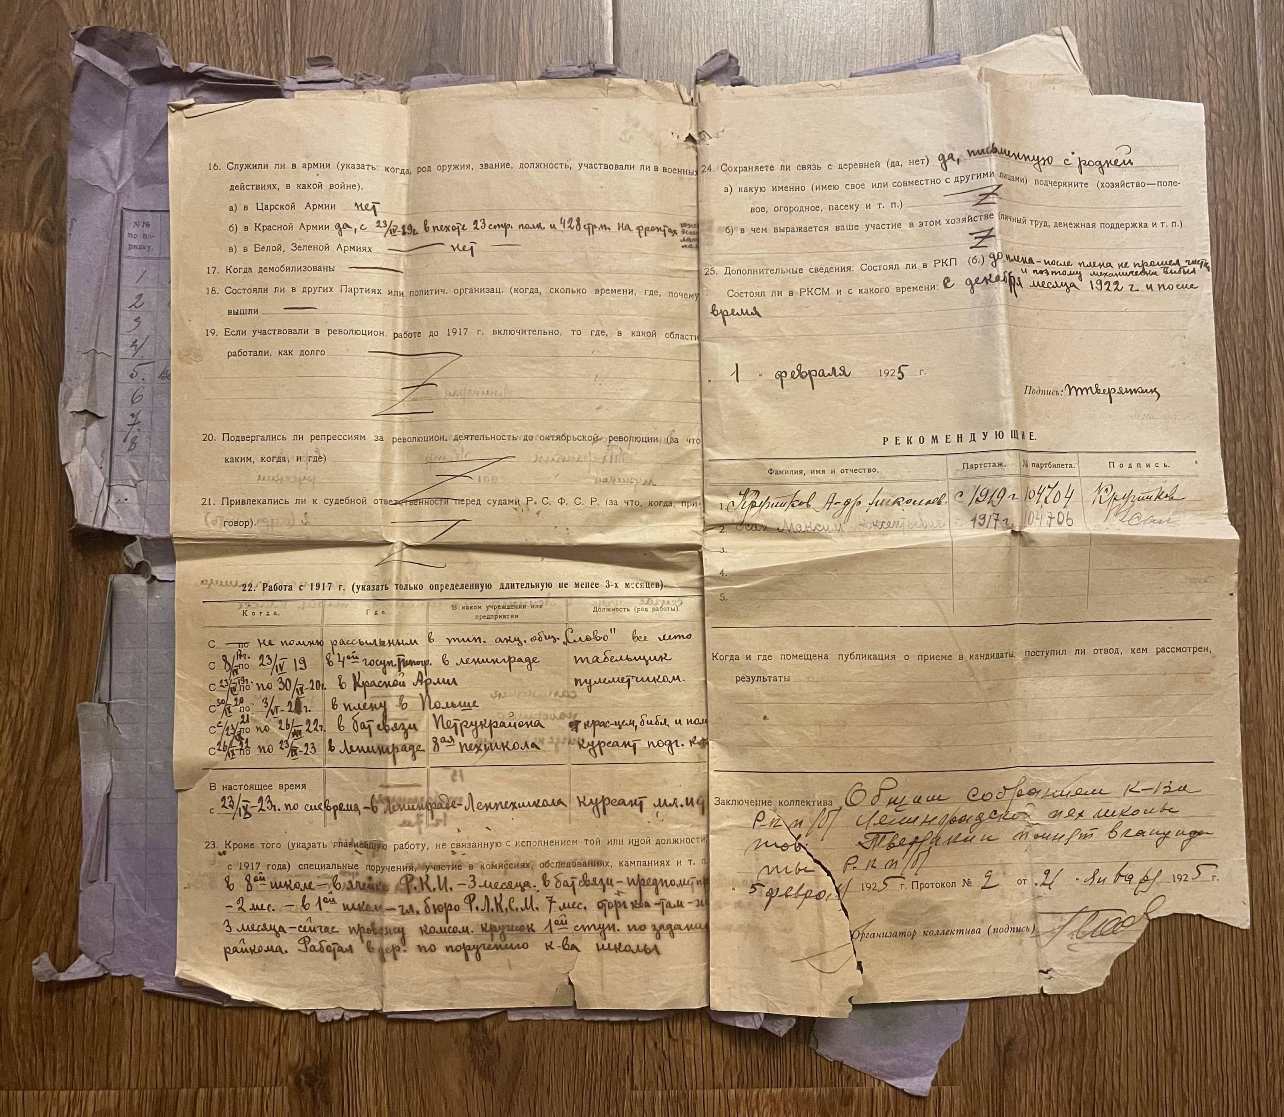 №№
по по-
рядку.
1
2
3
4
5.
6
7
8
16. Служили ли в армии (указать: когда, род оружия, звание, должность, участвовали ли в военных
действиях, в какой войне).
а) в Царской Армии нет
б) в Красной Армии да, с 23/IV-19г. в пехоте 23 стр. полк и 428 стр.п. на фронтах
в) в Белой, Зеленой Армиях нет
17. Когда демобилизованы
18. Состояли ли в других Партиях или политич. организац. (когда, сколько времени, где, почему
вышли
19. Если участвовали в революцион. работе до 1917 г. включительно, то где, в какой области
работали, как долго
20. Подвергались ли репрессиям за революцион. деятельность до октябрьской революции (за что
каким, когда, и где)
21. Привлекались ли к судебной ответственности перед судами Р. С. Ф. С. Р. (за что, когда, при-
говор).
22. Работа с 1917 г. (указать только определенную длительную не менее 3-х месяцев)
Когда. Где. В каком учреждении или предприятии Должность (род работы)
С по не помню рассыльным в тип. акц. общ. „Слово" все лето
С 8/ по 23/IV 19 в 4ой госуд. типогр. в ленинграде табельщик
С 23/IV 19г. по 30/ -20г. в Красной Армии пулеметчиком.
С 30/ -20 по 3/VI-21г. в плену в Польше
С 23/ 21 по 26/ -22г. в бат связи Петрукрайона красн-цем, библ. и пом
С 26/ 22 по 23/IX-23 в Ленинграде 8ая пехшкола курсант подг. к
В настоящее время
с 23/IX-23г. по сие время - в Ленинграде - Ленпехшкола курсант мл.
23. Кроме того (указать главнейшую работу, не связанную с исполнением той или иной должности,
с 1917 года) специальные поручения, участие в комиссиях, обследованиях, кампаниях и т. п.
в 8ой школе - в ячейке Р.К.И. - 3 месяца. в бат связи - предполит
- 2 мес. - в 1ой школ - чл. бюро Р.Л.К.С.М. 7 мес. там
3 месяца - сейчас провожу комсом. кружок 1ой ступ. по заданию
райкома. Работал в дер. по поручению к-ва школы
24. Сохраняете ли связь с деревней (да, нет) да, письменную с родней
а) какую именно (имею свое или совместно с другими лицами) подчеркните (хозяйство—поле-
вое, огородное, пасеку и т. п.)
б) в чем выражается ваше участие в этом хозяйстве (личный труд, денежная поддержка и т. п.)
25. Дополнительные сведения. Состоял ли в РКП (б.) до плена - после плена не прошел чистку
и поэтому механически выбыл
Состоял ли в РКСМ и с какого времени: с декабря месяца 1922 г. и по сие
время
1 февраля 1925 г.
Подпись: ПТверяткин
РЕКОМЕНДУЮЩИЕ.
Фамилия, имя и отчество. Партстаж. № партбилета. Подпись.
1. Кругликов А-др Николаев. с 1919 г 104704 Кругликов
2. Максим 1917 г. 104706
3.
4.
5.
Когда и где помещена публикация о приеме в кандидаты, поступил ли отвод, кем рассмотрен,
результаты
Заключение коллектива Общим собранием к-ва
Р.К.П(б) Ленинградской пех школы
тов. Тверяткин принят в кандида
ты Р.К.П(б)
5 февраля 1925 г. Протокол № 2 от 21 января 1925 г.
Организатор коллектива (подпись)